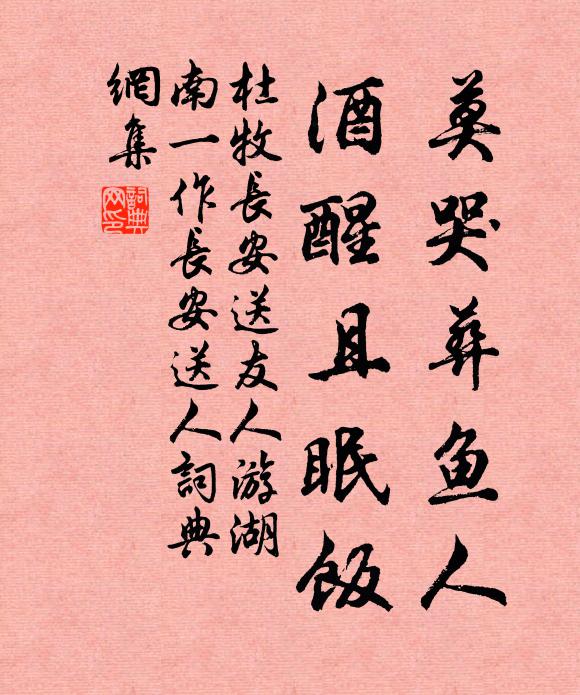 莫哭葬鱼人
酒醒且眠饭
杜牧長安送友人游湖
南一作長安送人詞典
網集
詞典
网印